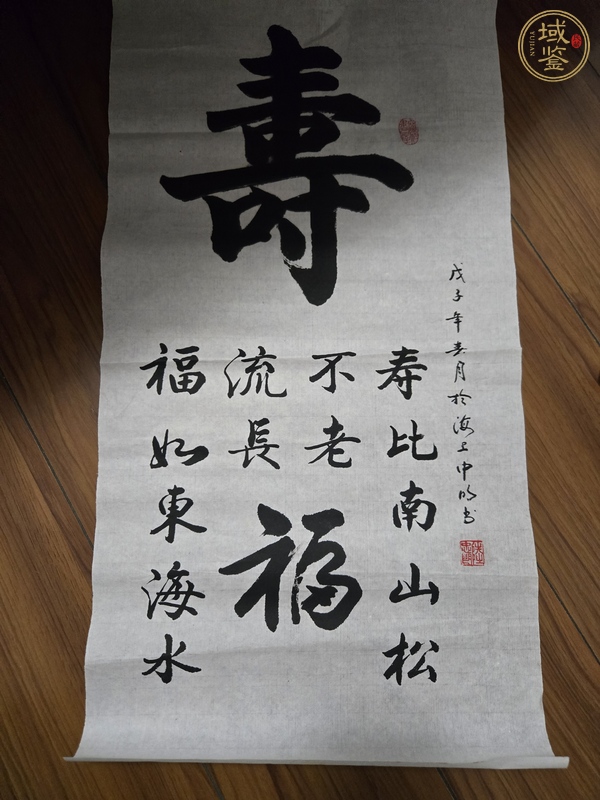 壽
寿比南山松
不老
流長
福如東海水
福
戊子年春月於海上
书
域鉴
YUJIAN